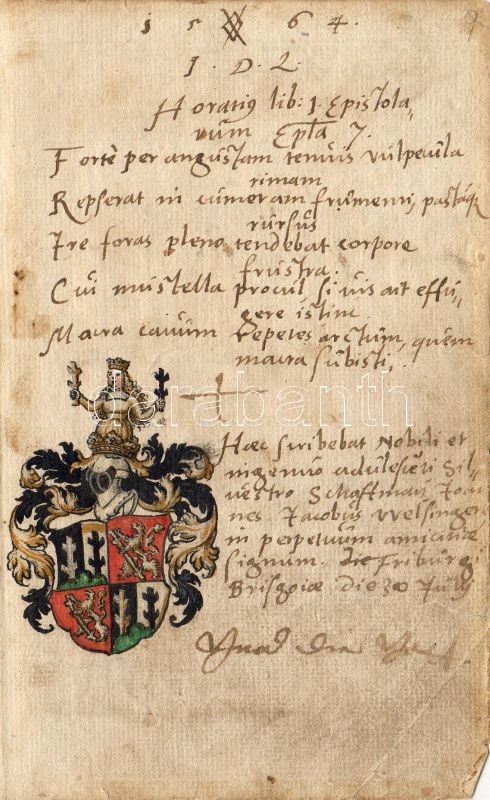 15 64.
9
I. D. L.
Horatius lib: 1. Epistola,
rum Epła 7.
Fortè per angustam tenuis vulpecula
rimam
Repserat in cumeram frumenti, pastaque
rursus
Ire foras pleno tendebat corpore
frustra.
Cui mustella procul si vis ait effu-
gere istinc.
Macra cavum repetes arctum, quem
macra subisti,
darabanth
Hæc scribebat Nobili et
ingenuo adulescēti Sil-
vestro Schaffman Joan
nes Jacobus Welsinger
in perpetuum amicitiæ
signum. Friburgi
Brisgoiæ die 30 July